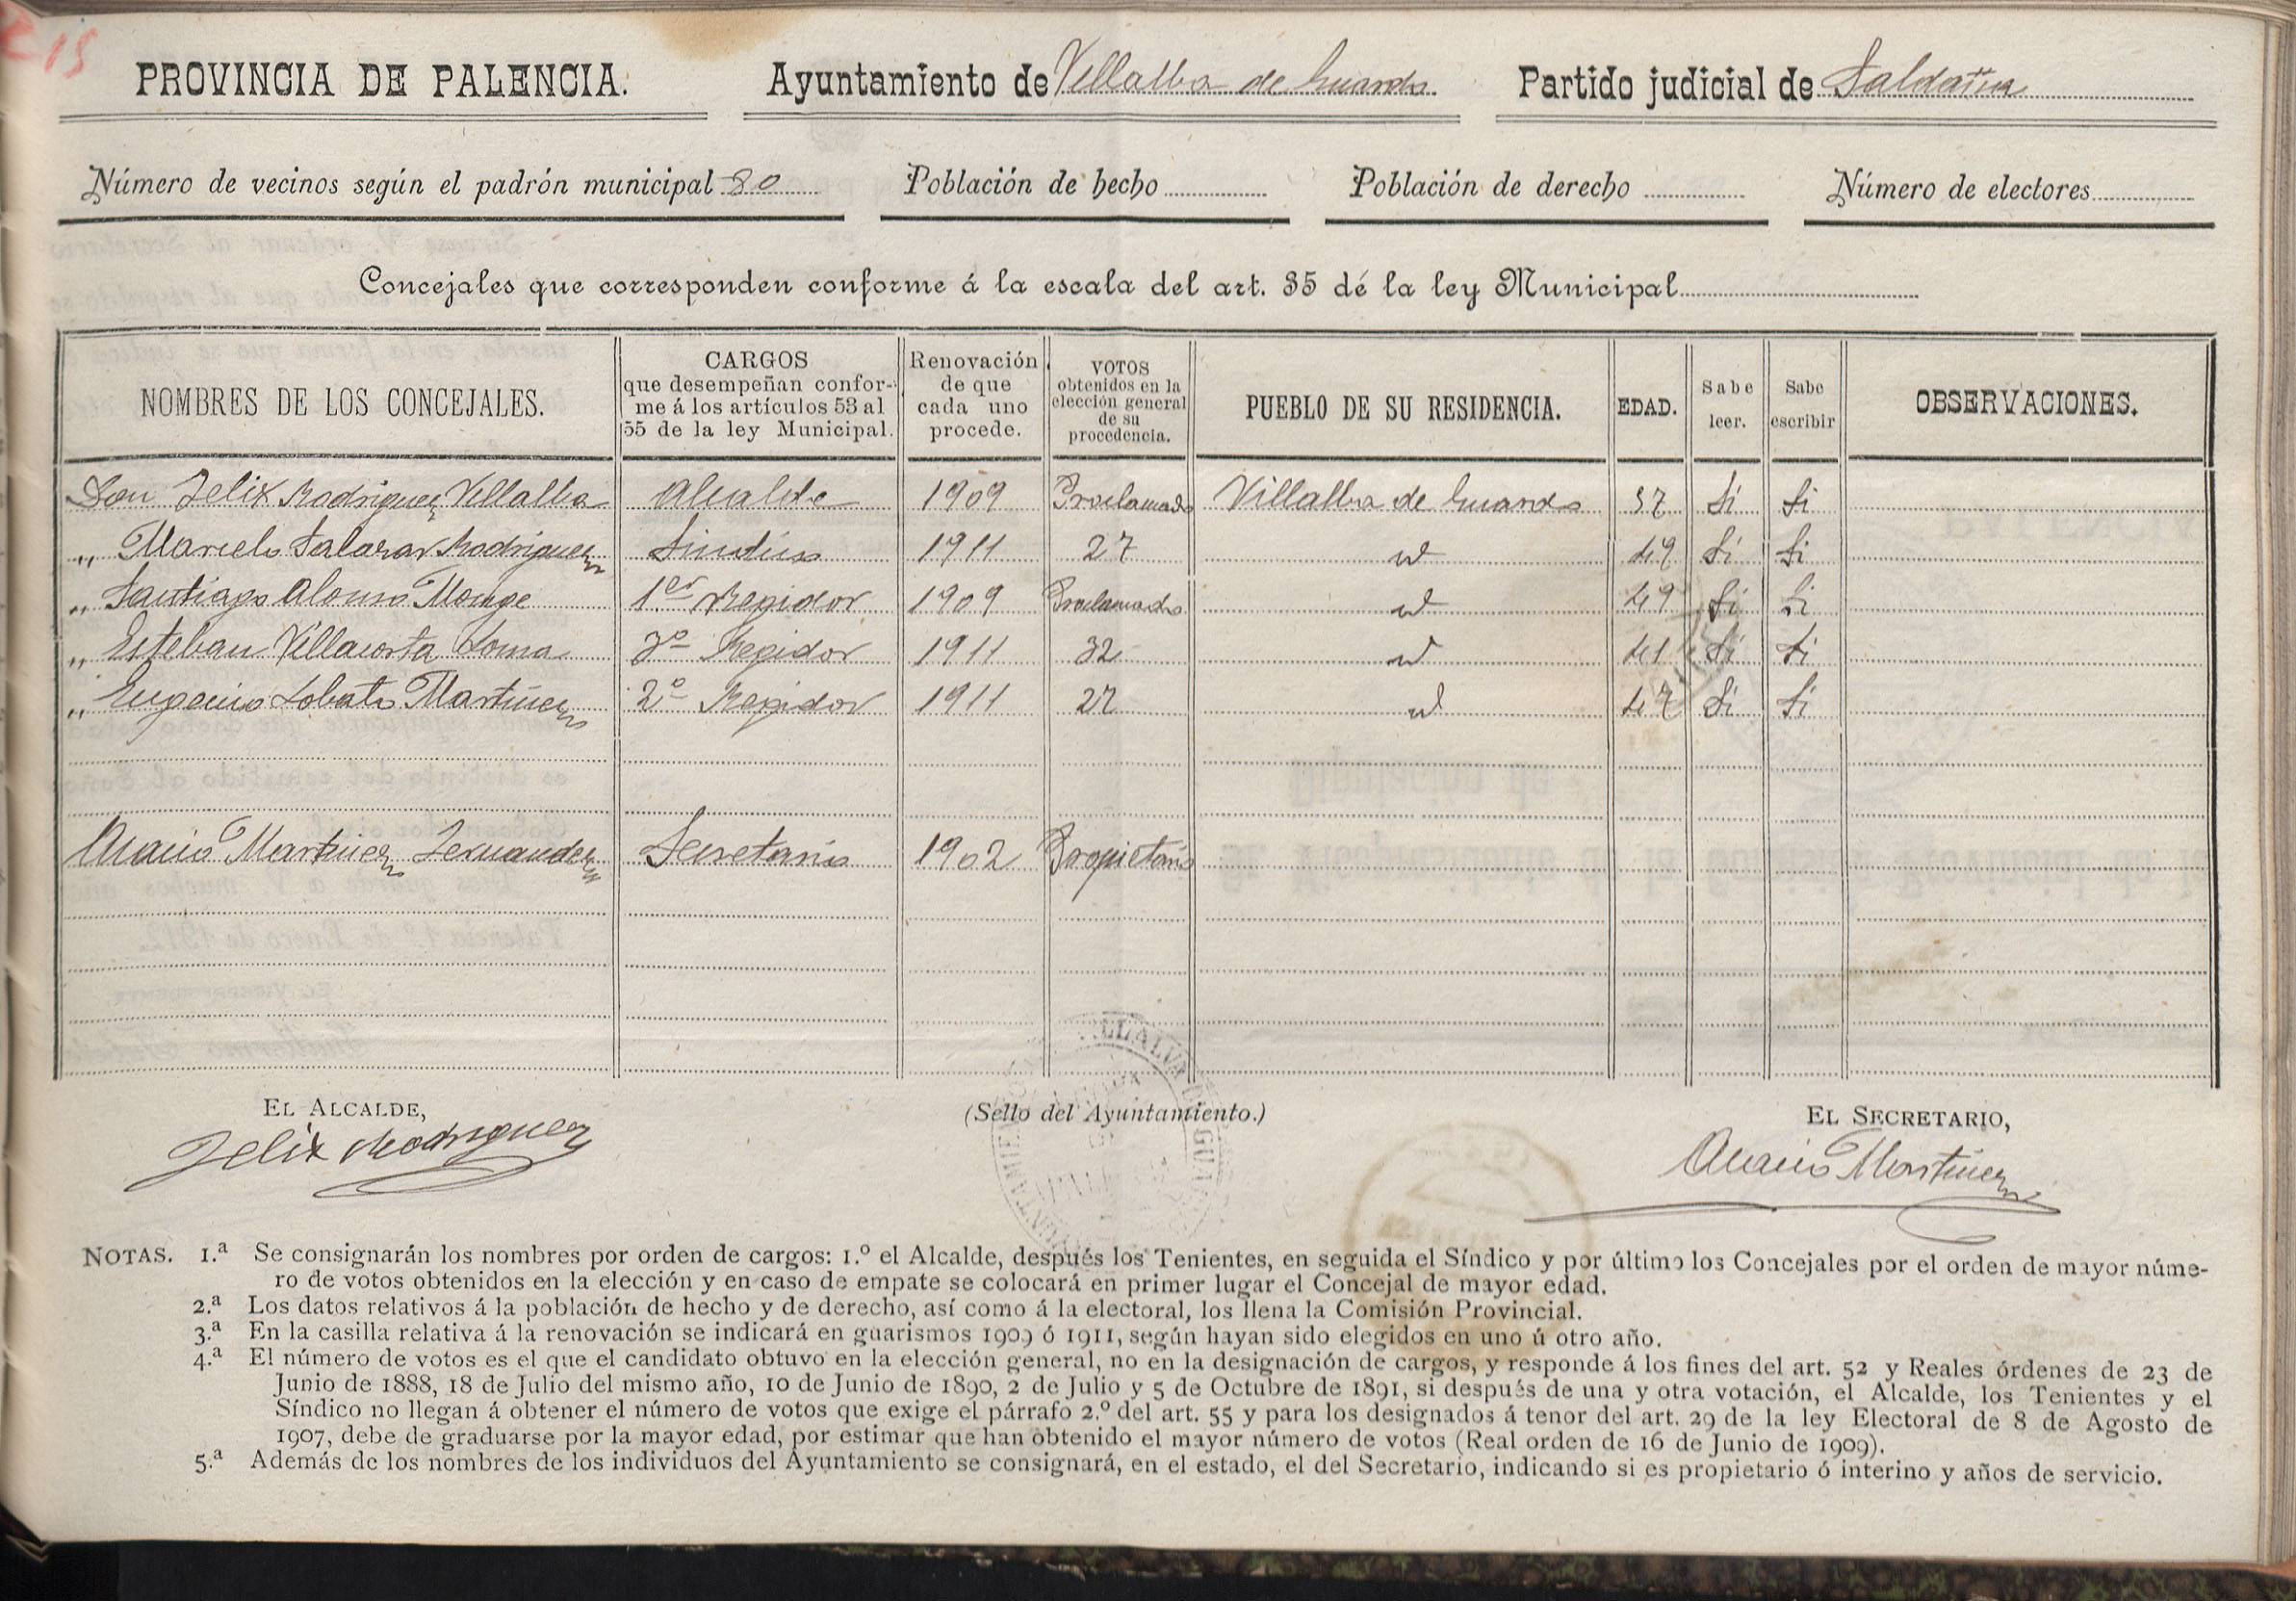 PROVINCIA DE PALENCIA. Ayuntamiento de Villalba de Guardo Partido judicial de Saldaña
Número de vecinos según el padrón municipal 80 Población de hecho Población de derecho Número de electores
Concejales que corresponden conforme á la escala del art. 35 dé la ley Municipal
NOMBRES DE LOS CONCEJALES. CARGOS que desempeñan confor-me á los artículos 53 al 55 de la ley Municipal. Renovación de que cada uno procede. VOTOS obtenidos en la elección general de su procedencia. PUEBLO DE SU RESIDENCIA. EDAD. Sabe leer. Sabe escribir OBSERVACIONES.
Don Felix Rodriguez Villalba Alcalde 1909 Proclamado Villalba de Guardo 37 Si Si
„ Marcelo Salazar Rodriguez Sindico 1911 27 id 49 Si Si
„ Santiago Alonso Monge 1er Regidor 1909 Proclamado id 49 Si Si
„ Esteban Villacorta Loma 3º Regidor 1911 32 id 41 Si Si
„ Eugenio Lobato Martinez 2º Regidor 1911 27 id 47 Si Si
Martinez Fernandez Secretario 1902 Propietario
EL ALCALDE, (Sello del Ayuntamiento.) EL SECRETARIO,
Felix Rodriguez Martinez
NOTAS. 1.ª Se consignarán los nombres por orden de cargos: 1.º el Alcalde, después los Tenientes, en seguida el Síndico y por último los Concejales por el orden de mayor núme-
ro de votos obtenidos en la elección y en caso de empate se colocará en primer lugar el Concejal de mayor edad.
2.ª Los datos relativos á la población de hecho y de derecho, así como á la electoral, los llena la Comisión Provincial.
3.ª En la casilla relativa á la renovación se indicará en guarismos 1909 ó 1911, según hayan sido elegidos en uno ú otro año.
4.ª El número de votos es el que el candidato obtuvo en la elección general, no en la designación de cargos, y responde á los fines del art. 52 y Reales órdenes de 23 de
Junio de 1888, 18 de Julio del mismo año, 10 de Junio de 1890, 2 de Julio y 5 de Octubre de 1891, si después de una y otra votación, el Alcalde, los Tenientes y el
Síndico no llegan á obtener el número de votos que exige el párrafo 2.º del art. 55 y para los designados á tenor del art. 29 de la ley Electoral de 8 de Agosto de
1907, debe de graduarse por la mayor edad, por estimar que han obtenido el mayor número de votos (Real orden de 16 de Junio de 1909).
5.ª Además de los nombres de los individuos del Ayuntamiento se consignará, en el estado, el del Secretario, indicando si es propietario ó interino y años de servicio.